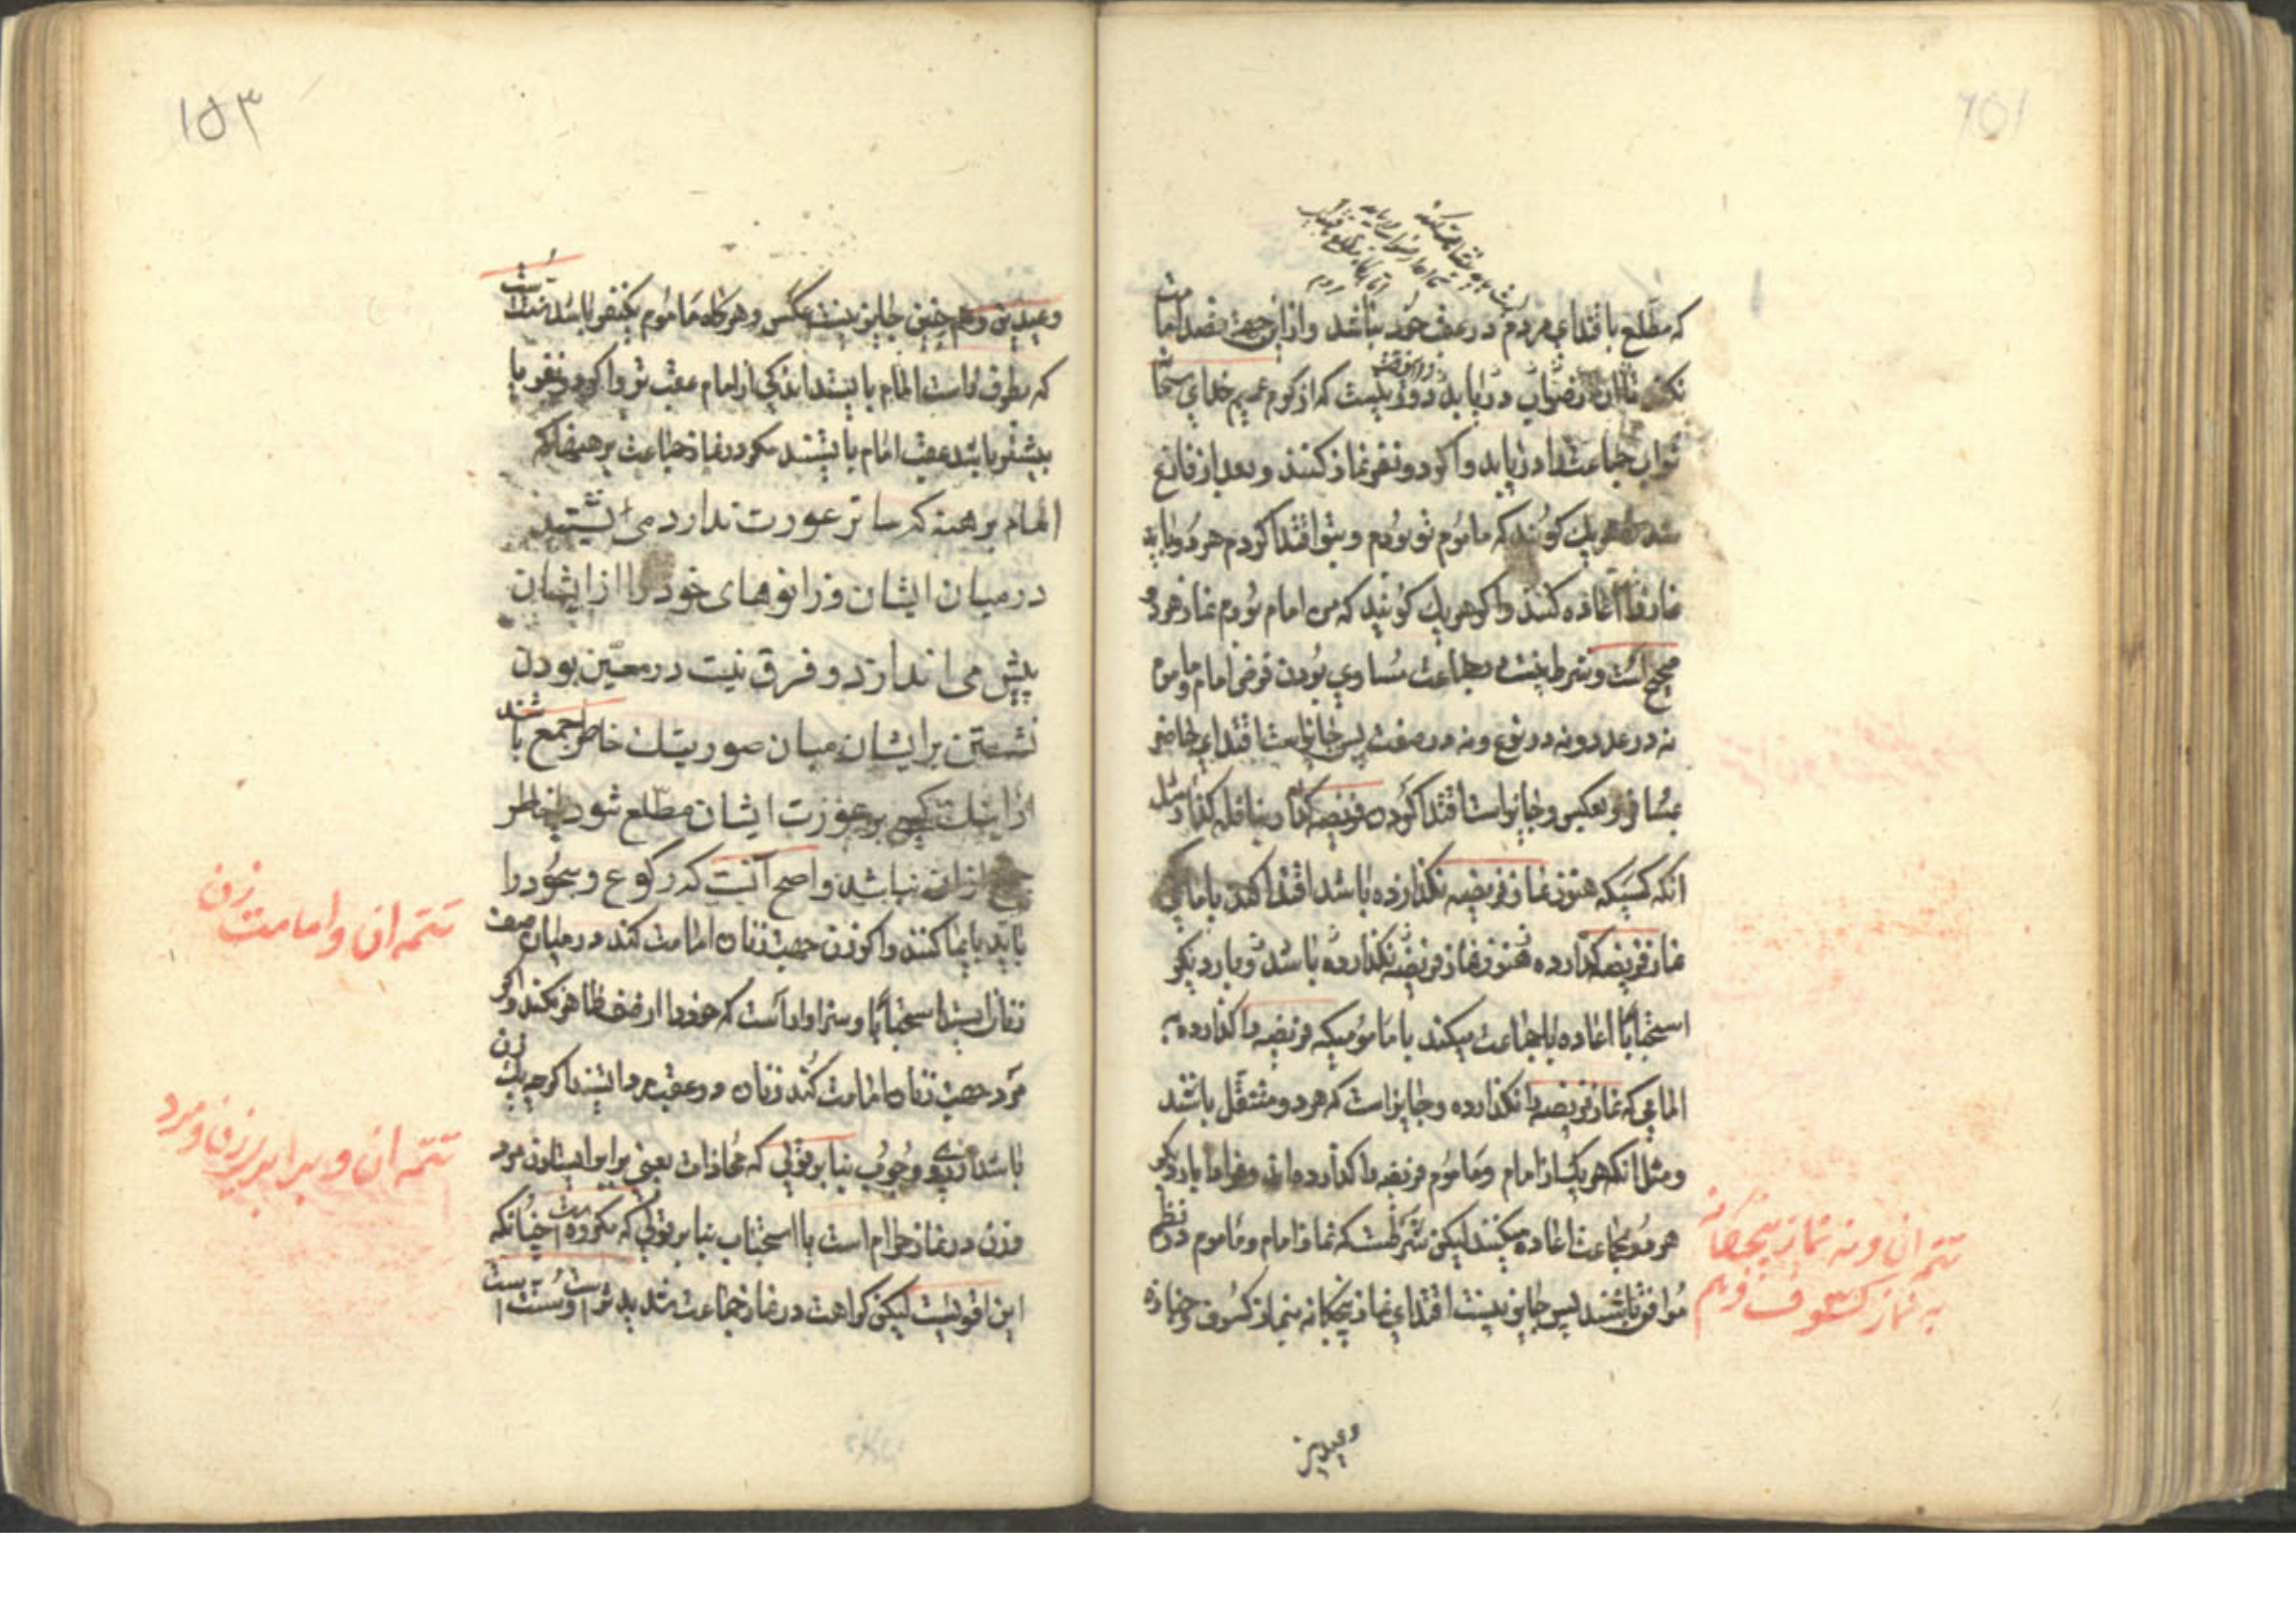 که مطلع باقتدای مردم در عقب خود نباشد و ازین جهت قصد امامت
نکند تا آن ثواب دریابد دور نیست که از کرم عمیم خدای سبحانه
ثواب جماعت را دریابد و اکر دو نفر نماز کنند و بعد از فارغ
شدن هر یک کویند که ماموم تو بودم و بتو اقتدا کردم هر دو باید
نماز را اعاده کنند و اکر هر یک کویند که من امام بودم نماز هر دو
صحیح است و شرط نیست در جماعت مساوی بودن فرض امام و ماموم
نه در عدد و نه در نوع و نه در صفت پس جایز است اقتدای حاضر
بمسافر و بعکس و جایز است اقتدا کردن فریضه کذار بنافله کذار مثل
انکه کسیکه هنوز نماز فریضه نکذارده باشد اقتدا کند بامامی که
نماز فریضه کذارده هنوز نماز فریضه نکذارده باشد و بار دیکر
استحبابا اعاده با جماعت میکند یا مامومیکه فریضه را کذارده به
امامی که نماز فریضه را نکذارده و جایز است که هر دو متنفل باشند
و مثل انکه هر یک از امام و ماموم فریضه را کذارده اند و نماز را بار دیکر
هر دو بجماعت اعاده میکنند لیکن شرطست که نماز امام و ماموم در نظم
موافق باشند پس جایز نیست اقتدای نماز پنجکانه بنماز کسوف و جنازه
تتمه ان و نه نماز پنجکانه
به نماز کسوف و هم
وعیدین
۱۵۳
وعیدین و هم چنین جایز نیست عکس و هر کاه ماموم یکنفر باشد سنت است
که بطرف راست امام بایستد اندکی از امام عقب تر و اکر دو نفر یا
بیشتر باشد عقب امام بایستند مکر در نماز جماعت برهنها که
امام برهنه که ساتر عورت ندارد می ایستند
در میان ایشان و زانوهای خود را از ایشان
پیش می اندازد و فرق نیست در معین بودن
نشستن بر ایشان میان صوریتک خاطر جمع باشند
از اینک کسی بر عورت ایشان مطلع شود یا خاطر
جمع ازان نباشد و اصح آنست که رکوع و سجود را
باید بایما کنند و اکر زن جهت زنان امامت کند در میان صف
زنان ایستد استحبابا و سزاوار آست که خود را از صف ظاهر نکند و اکر
مرد جهت زنان امامت کند زنان در عقب مرد ایستند اکر چه یک زن
باشد از روی وجوب بنا بر قولی که محاذات یعنی برابر ایستادن مرد
و زن در نماز حرام است یا استحباب بنا بر قولی که مکروه است چنانکه
این اقویست لیکن کراهت در نماز جماعت شدید تر است
تتمه ان و امامت زن
تتمه ان و برابر زن و مرد